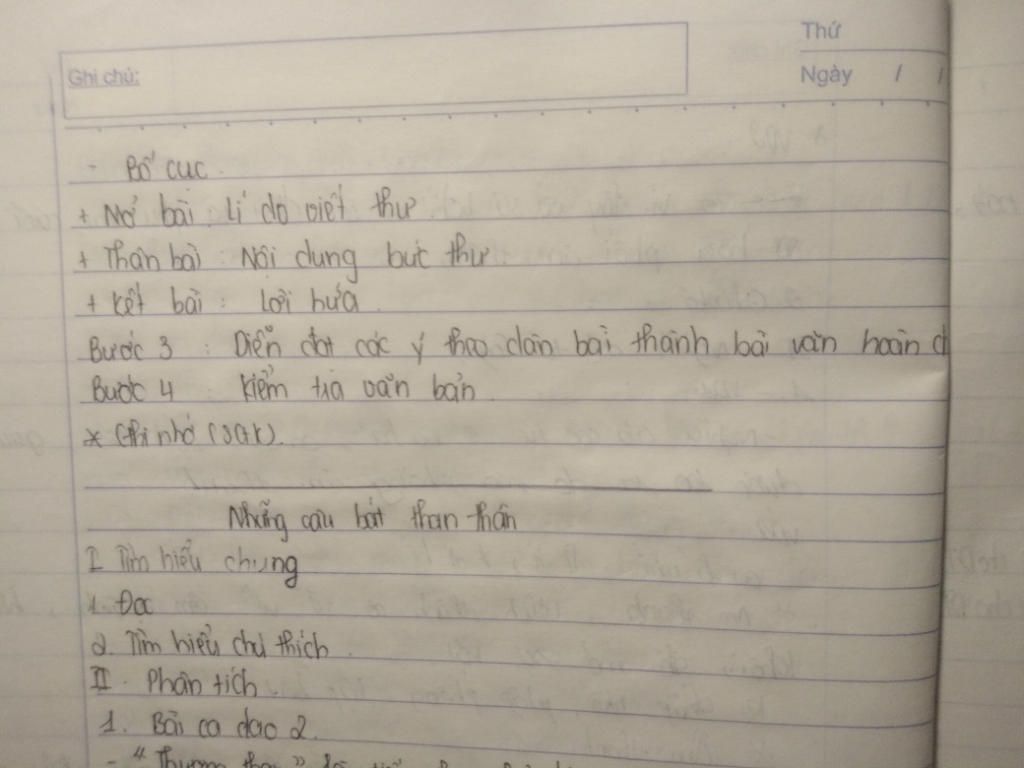 Thứ
Ghi chú:
Ngày / /
- Bố cục
+ Mở bài Lí do viết thư
+ Thân bài : Nội dung bức thư
+ Kết bài : Lời hứa
Bước 3 : Diễn đạt các ý theo dàn bài thành bài văn hoàn
Bước 4 : Kiểm tra văn bản
* Ghi nhớ (SGK).
Những câu hát than thân
I Tìm hiểu chung
1. Đọc
2. Tìm hiểu chú thích
II. Phân tích
1. Bài ca dao 2.
- "Thương thay"